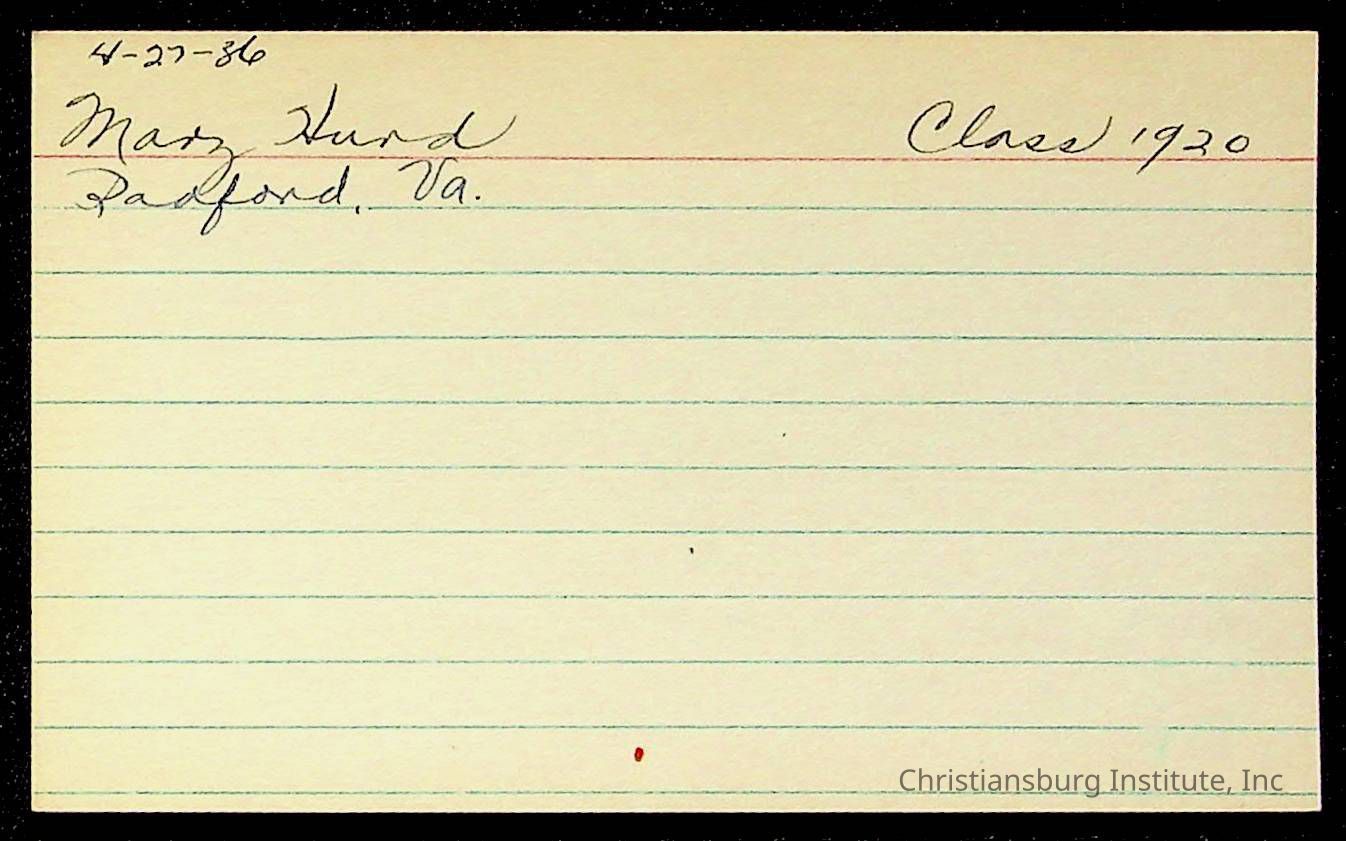 4-27-36
Mary Hurd Class 1920
Radford, Va.
Christiansburg Institute, Inc